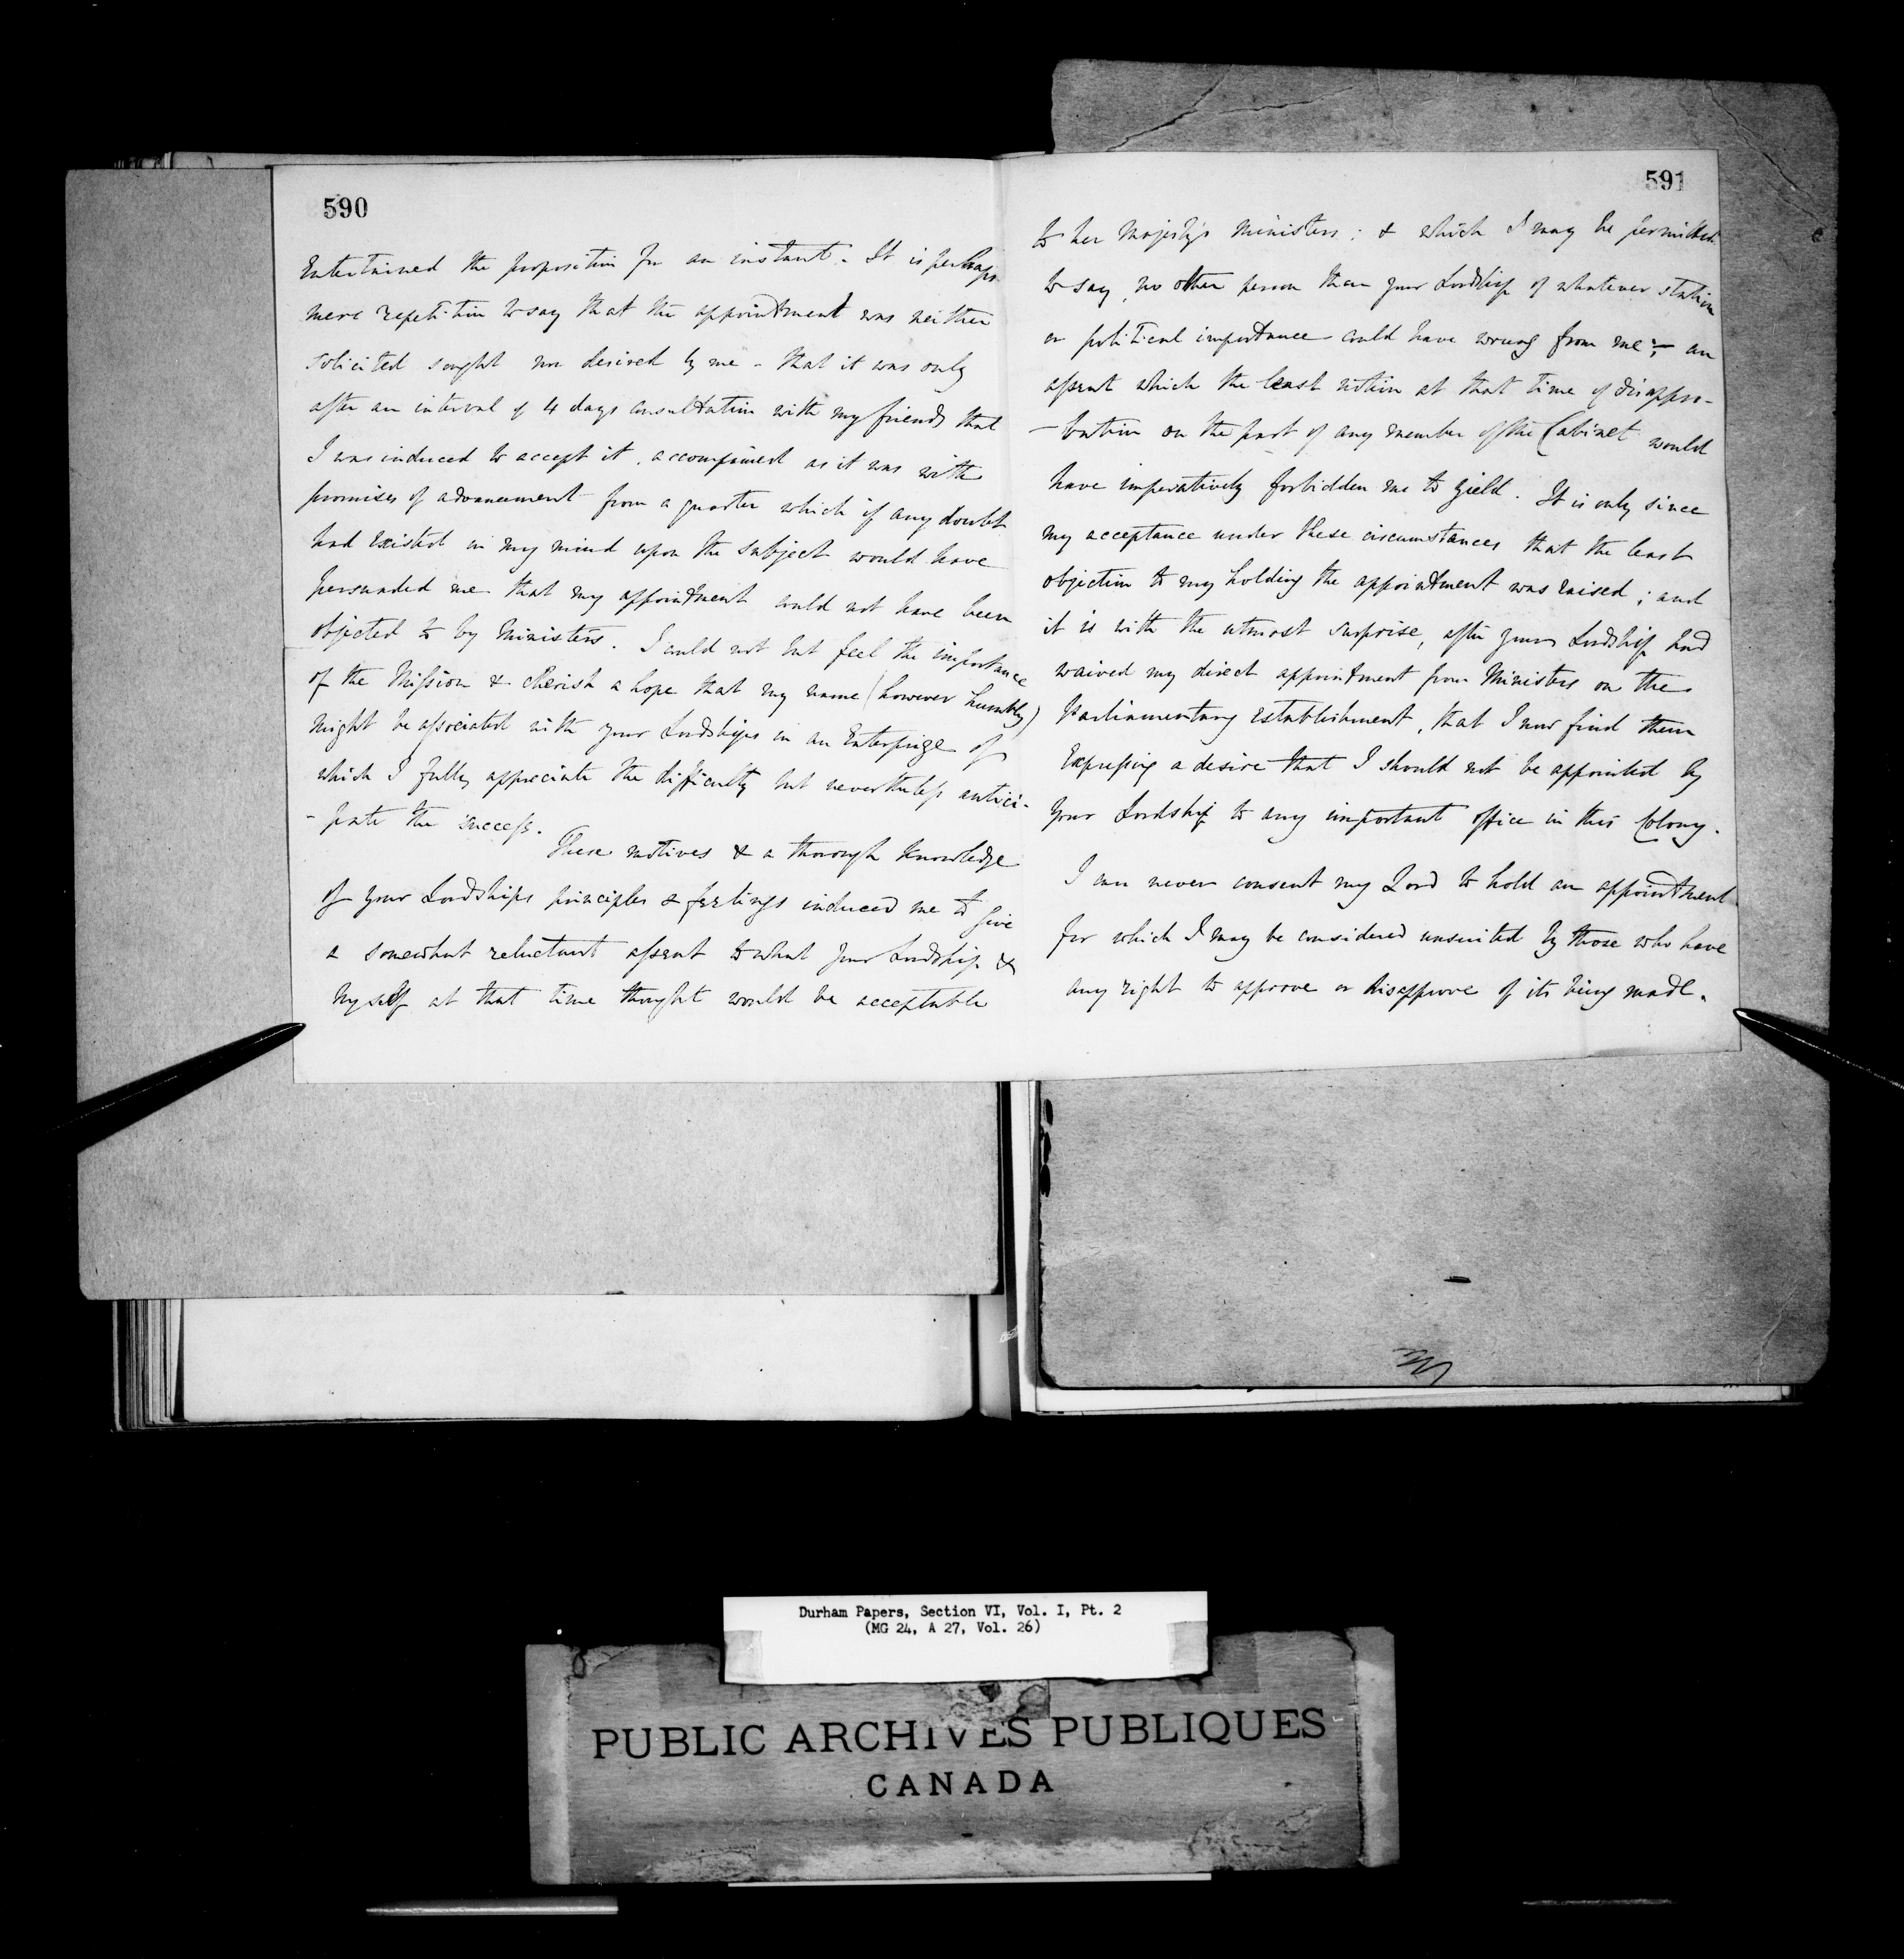 590
Entertained the proposition for an instant. It is perhaps
mere repetition to say that the appointment was neither
solicited sought nor desired by me - that it was only
after an interval of 4 days consultation with my friends that
I was induced to accept it, accompanied as it was with
promises of advancement from a quarter which if any doubt
had Existed in my mind upon the Subject would have
persuaded me that my appointment could not have been
objected to by Ministers. I could not but feel the importance
of the Mission & cherish a hope that my name (however humbly)
might be associated with your Lordships in an Enterprize of
which I fully appreciate the difficulty but nevertheless antici-
-pate the success.
These motives & a thorough Knowledge
of your Lordships principles & feelings induced me to give
a somewhat reluctant assent to what your Lordship &
Myself at that time thought would be acceptable
591
to her Majesty's Ministers; & which I may be permitted
to say, no other person than your Lordship of whatever station
or political importance could have wrung from me; - an
assent which the least notion at that time of disappro-
-bation on the part of any member of the Cabinet would
have imperatively forbidden me to yield. It is only since
my acceptance under these circumstances that the least
objection to my holding the appointment was raised; and
it is with the utmost surprise, after your Lordship had
waived my direct appointment from Ministers on the
Parliamentary Establishment, that I now find them
Expressing a desire that I should not be appointed by
Your Lordship to any important office in this Colony.
I can never consent my Lord to hold an appointment
for which I may be considered unsuited by those who have
any right to approve or disapprove of its being made.
Durham Papers, Section VI, Vol. I, Pt. 2
(MG 24, A 27, Vol. 26)
PUBLIC ARCHIVES PUBLIQUES
CANADA